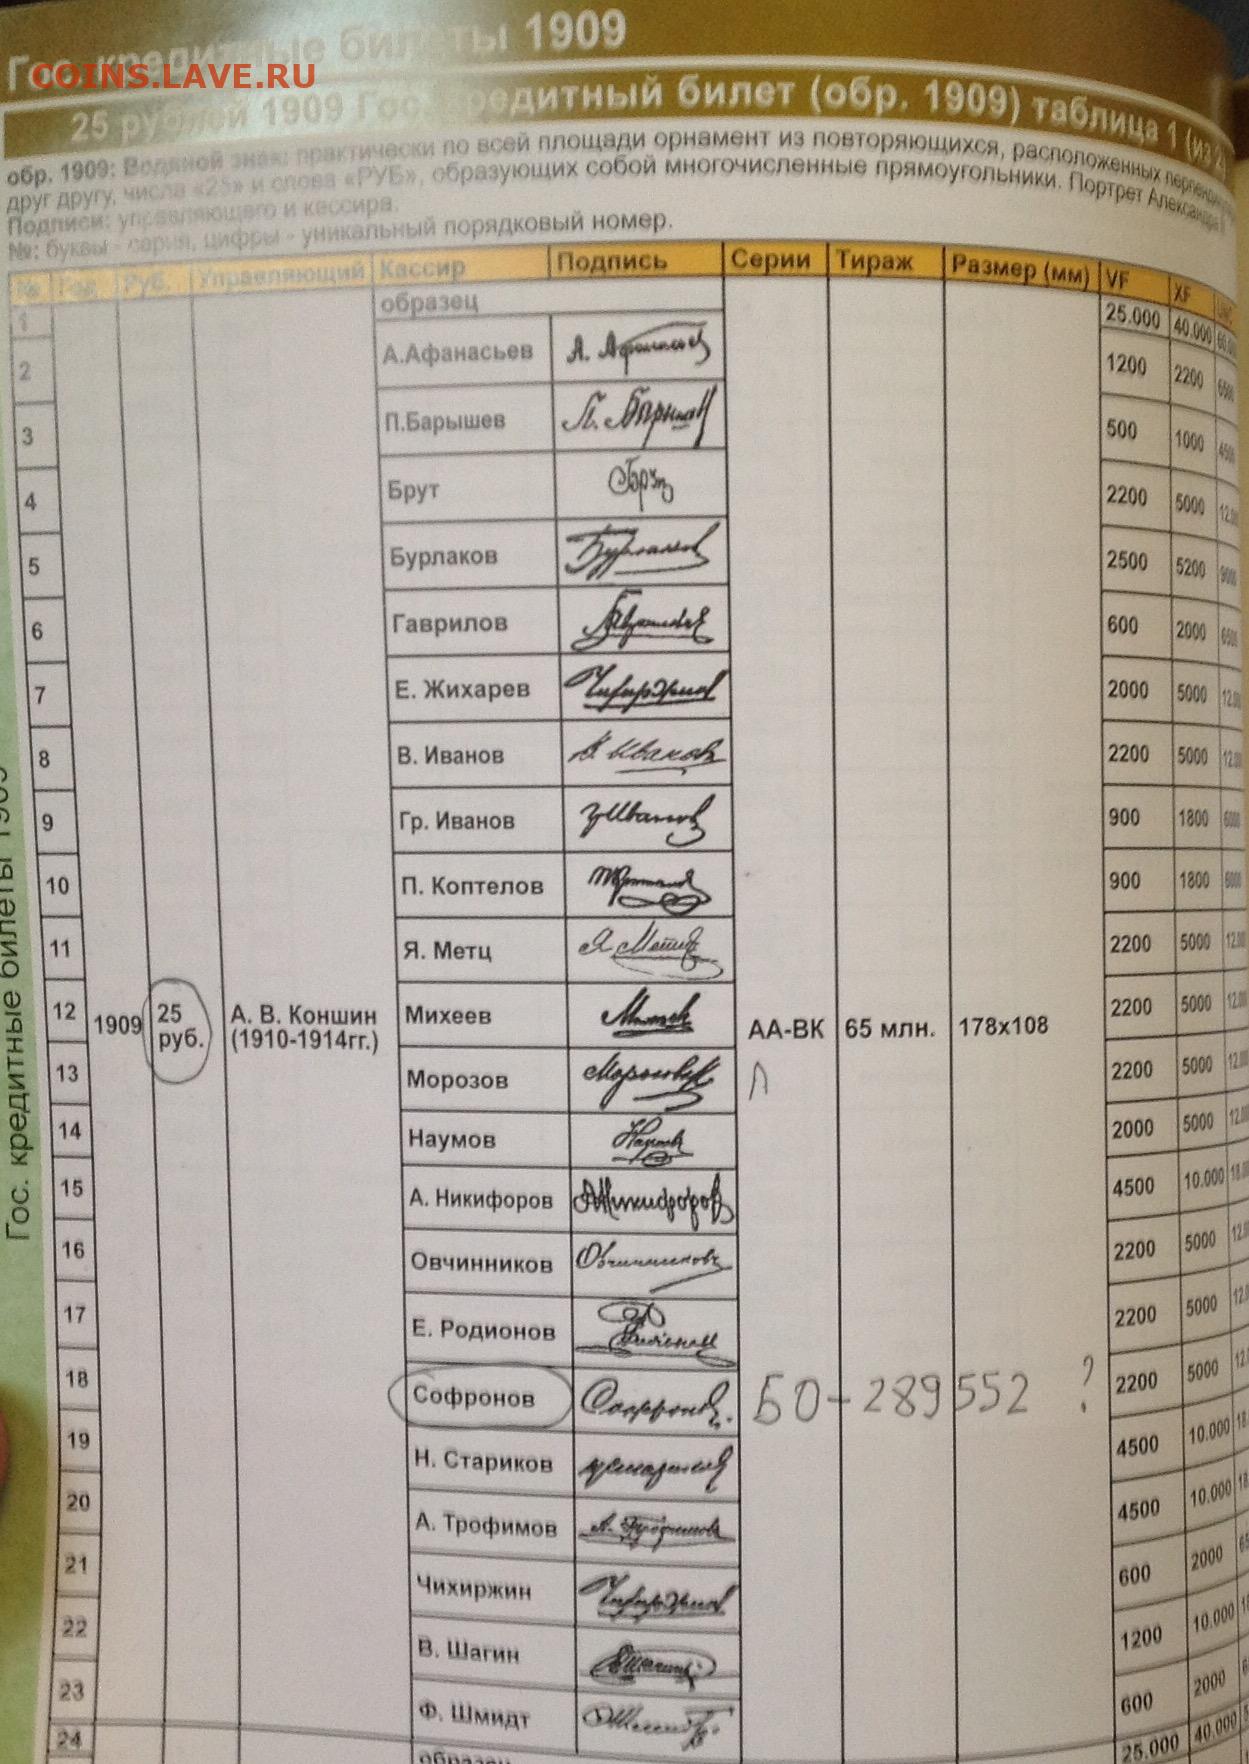 Гос. кредитные билеты 1909
COINS.LAVE.RU
25 рублей 1909 Гос. кредитный билет (обр. 1909) таблица 1 (из 2)
обр. 1909: Водяной знак: практически по всей площади орнамент из повторяющихся, расположенных
друг другу, числа «25» и слова «РУБ», образующих собой многочисленные прямоугольники. Портрет Александра
Подписи: управляющего и кассира.
№: буквы - серия, цифры - уникальный порядковый номер.
№ Год Руб. Управляющий Кассир Подпись Серии Тираж Размер (мм) VF XF UNC
1 образец 25.000 40.000
2 А.Афанасьев А. Афанасьев 1200 2200 6500
3 П.Барышев П. Барышев 500 1000 4500
4 Брут Брут 2200 5000
5 Бурлаков Бурлаков 2500 5200 9000
6 Гаврилов Гаврилов 600 2000 6500
7 Е. Жихарев Чихиржин 2000 5000
8 В. Иванов В. Иванов 2200 5000
9 Гр. Иванов Гр Иванов 900 1800 6000
10 П. Коптелов 900 1800 6000
11 Я. Метц Я Метц 2200 5000
12 1909 25 руб. А. В. Коншин (1910-1914гг.) Михеев Михеев АА-ВК 65 млн. 178x108 2200 5000
13 Морозов Морозов Л 2200 5000
14 Наумов Наумов 2000 5000
15 А. Никифоров АНикифоров 4500 10.000
16 Овчинников Овчинников 2200 5000
17 Е. Родионов 2200 5000
18 Софронов Софронов. БО-289552 ? 2200 5000
19 Н. Стариков 4500 10.000
20 А. Трофимов А. Трофимов 4500 10.000
21 Чихиржин Чихиржин 600 2000
22 В. Шагин ВШагин 1200 10.000
23 Ф. Шмидт ФШмидт 600 2000
24 образец 25.000 40.000
Гос. кредитные билеты 1909